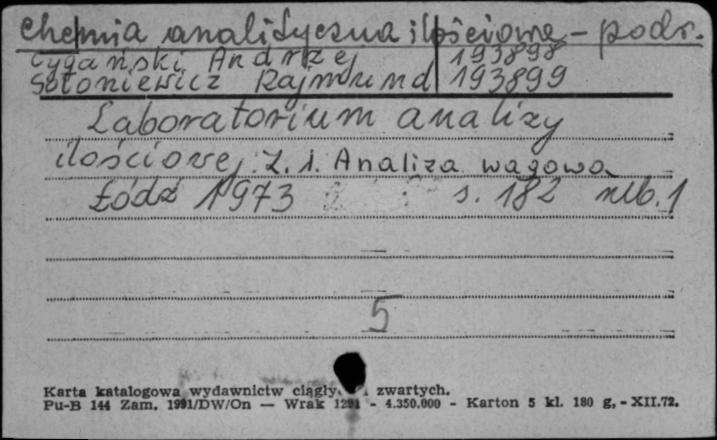 chemia analityczna ilościowa – podr.
Cygański Andrzej 193898
Sołoniewicz Rajmund 193899
Laboratorium analizy
ilościowej. Z. 1. Analiza wagowa
Łódź 1973 s. 182 nlb. 1
5
Karta katalogowa wydawnictw ciągły. zwartych.
Pu-B 144 Zam. 1991/DW/On — Wrak 1291 - 4.350.000 - Karton 5 kl. 180 g. - XII.72.